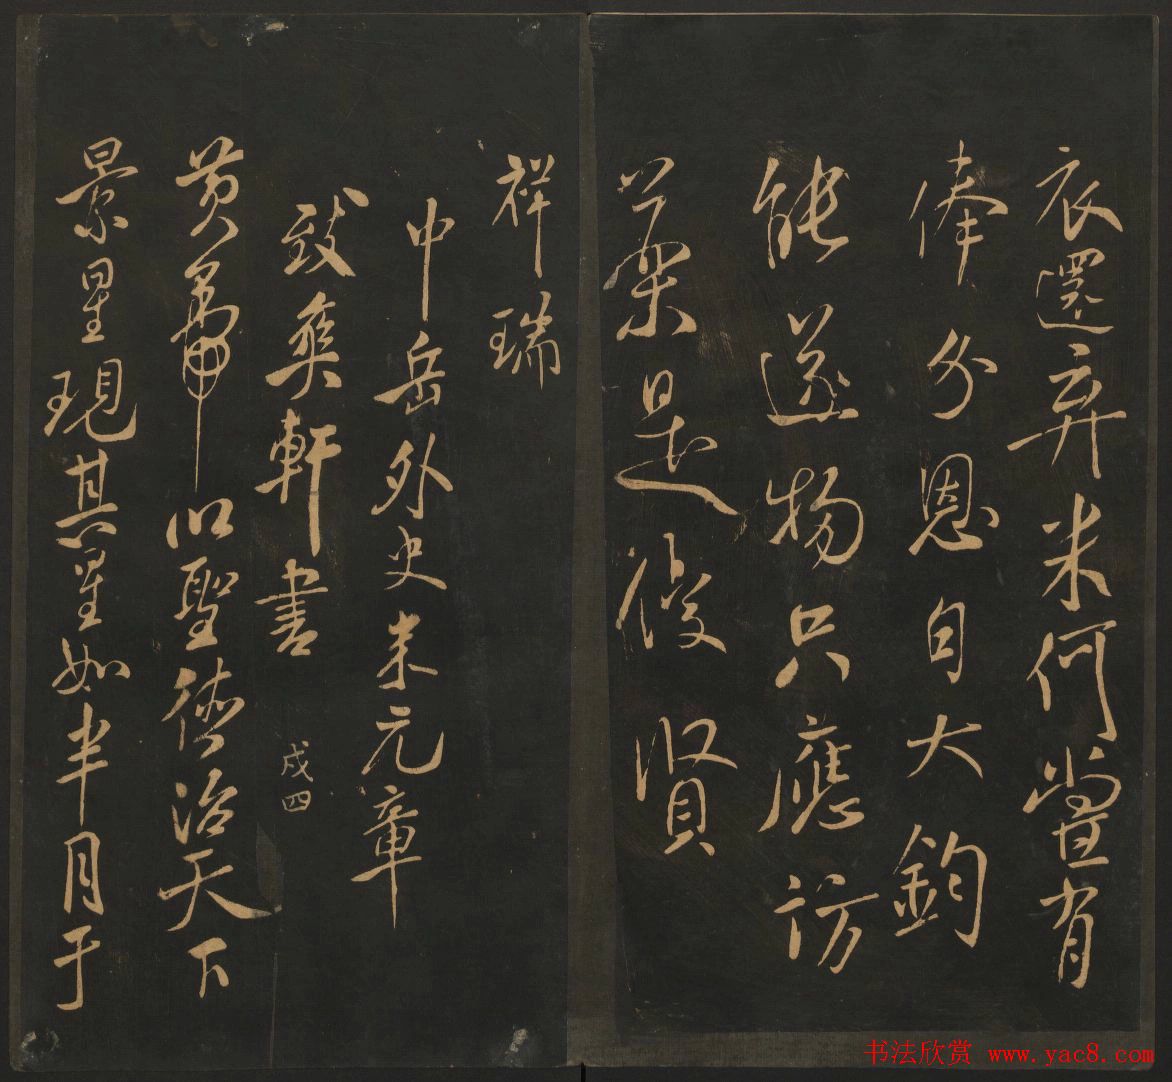 衣還弃米何曾省
俸分恩自大鈞
能遂物只應訪
藥是賢
祥瑞
中岳外史米元章
致爽軒書
戌四
黄帝以聖德治天下
景星現其星如半月于
书法欣赏 www.yac8.com